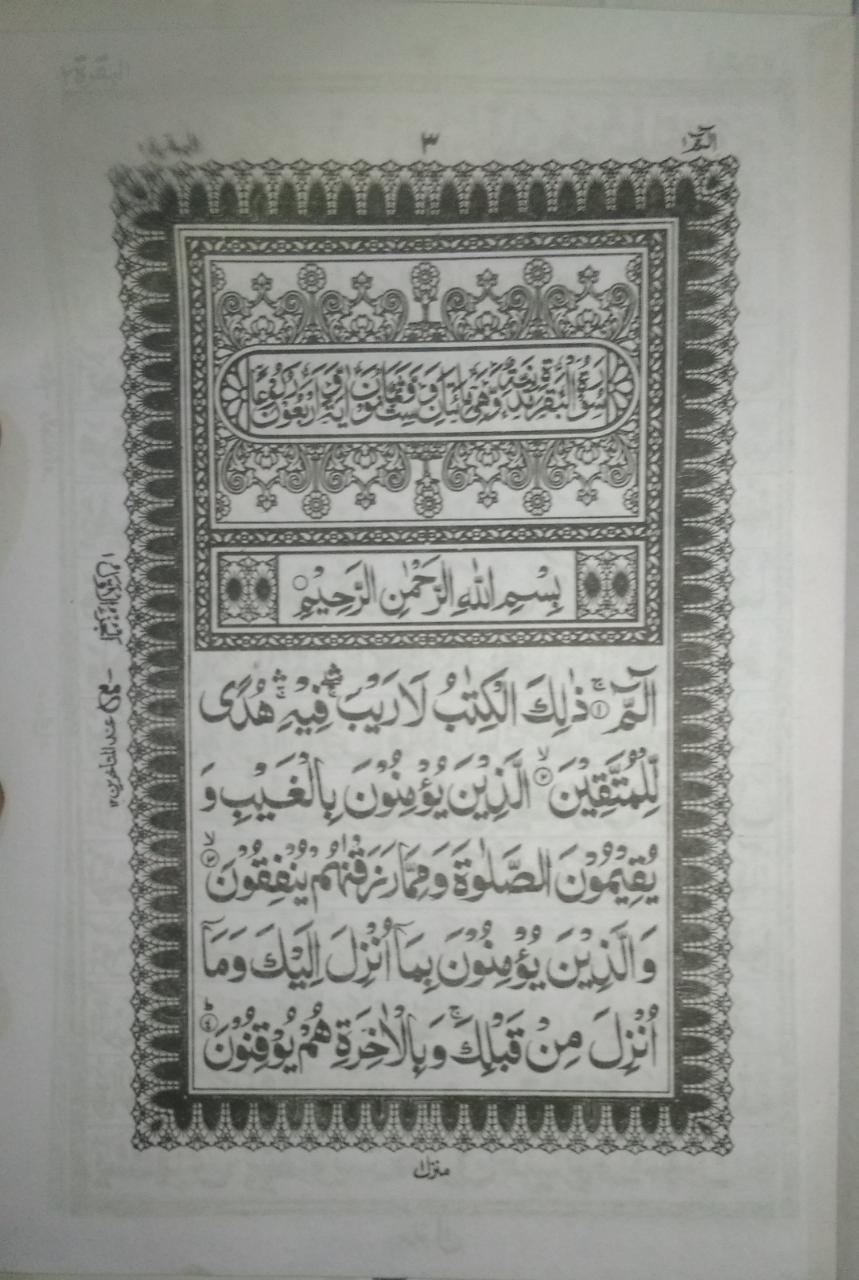 الٓمّٓ ١
٣
البقرة ٢
سُوْرَةُ الْبَقَرَةِ مَدَنِيَّةٌ وَّهِيَ مِائَتَانِ وَسِتٌّ وَّثَمَانُوْنَ اٰيَةً وَّاَرْبَعُوْنَ رُكُوْعًا
بِسْمِ اللّٰهِ الرَّحْمٰنِ الرَّحِيْمِ ○
الٓمّٓ ۚ﴿١﴾ ذٰلِكَ الْكِتٰبُ لَا رَيْبَ ۛۚ فِيْهِ ۛۚ هُدًى
لِّلْمُتَّقِيْنَ ۙ﴿٢﴾ الَّذِيْنَ يُؤْمِنُوْنَ بِالْغَيْبِ وَ
يُقِيْمُوْنَ الصَّلٰوةَ وَمِمَّا رَزَقْنٰهُمْ يُنْفِقُوْنَ ۙ﴿٣﴾
وَالَّذِيْنَ يُؤْمِنُوْنَ بِمَآ اُنْزِلَ اِلَيْكَ وَمَآ
اُنْزِلَ مِنْ قَبْلِكَ ۚ وَبِالْاٰخِرَةِ هُمْ يُوْقِنُوْنَ ؕ﴿٤﴾
عند المتاخرين ١٢
منزل ١